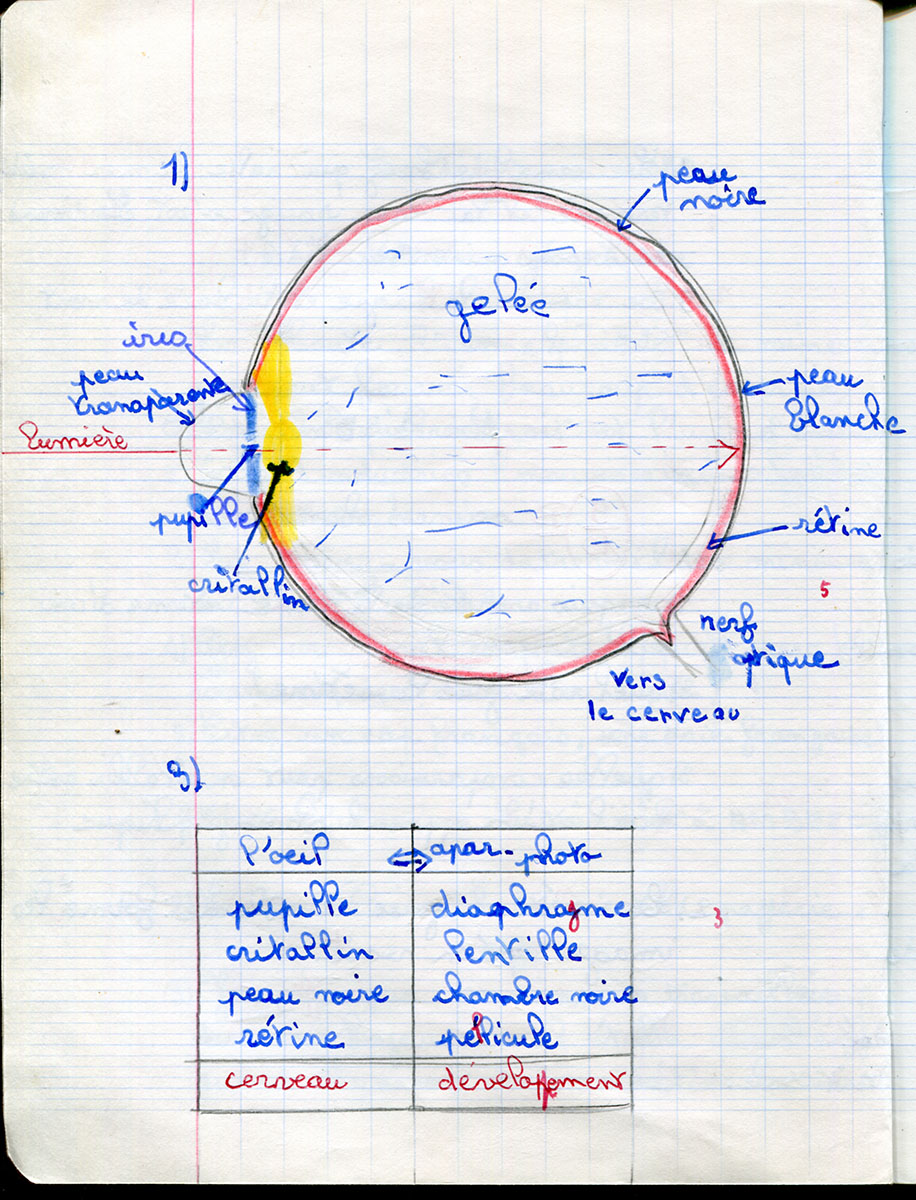 1)
peau
noire
gelée
iris
peau
transparente
peau
blanche
lumière
pupille
rétine
critallin
5
nerf
optique
vers
le cerveau
3)
l'oeil ⇔ apar. photo
pupille diaphragme
3
critallin lentille
peau noire chambre noire
rétine pellicule
cerveau développement